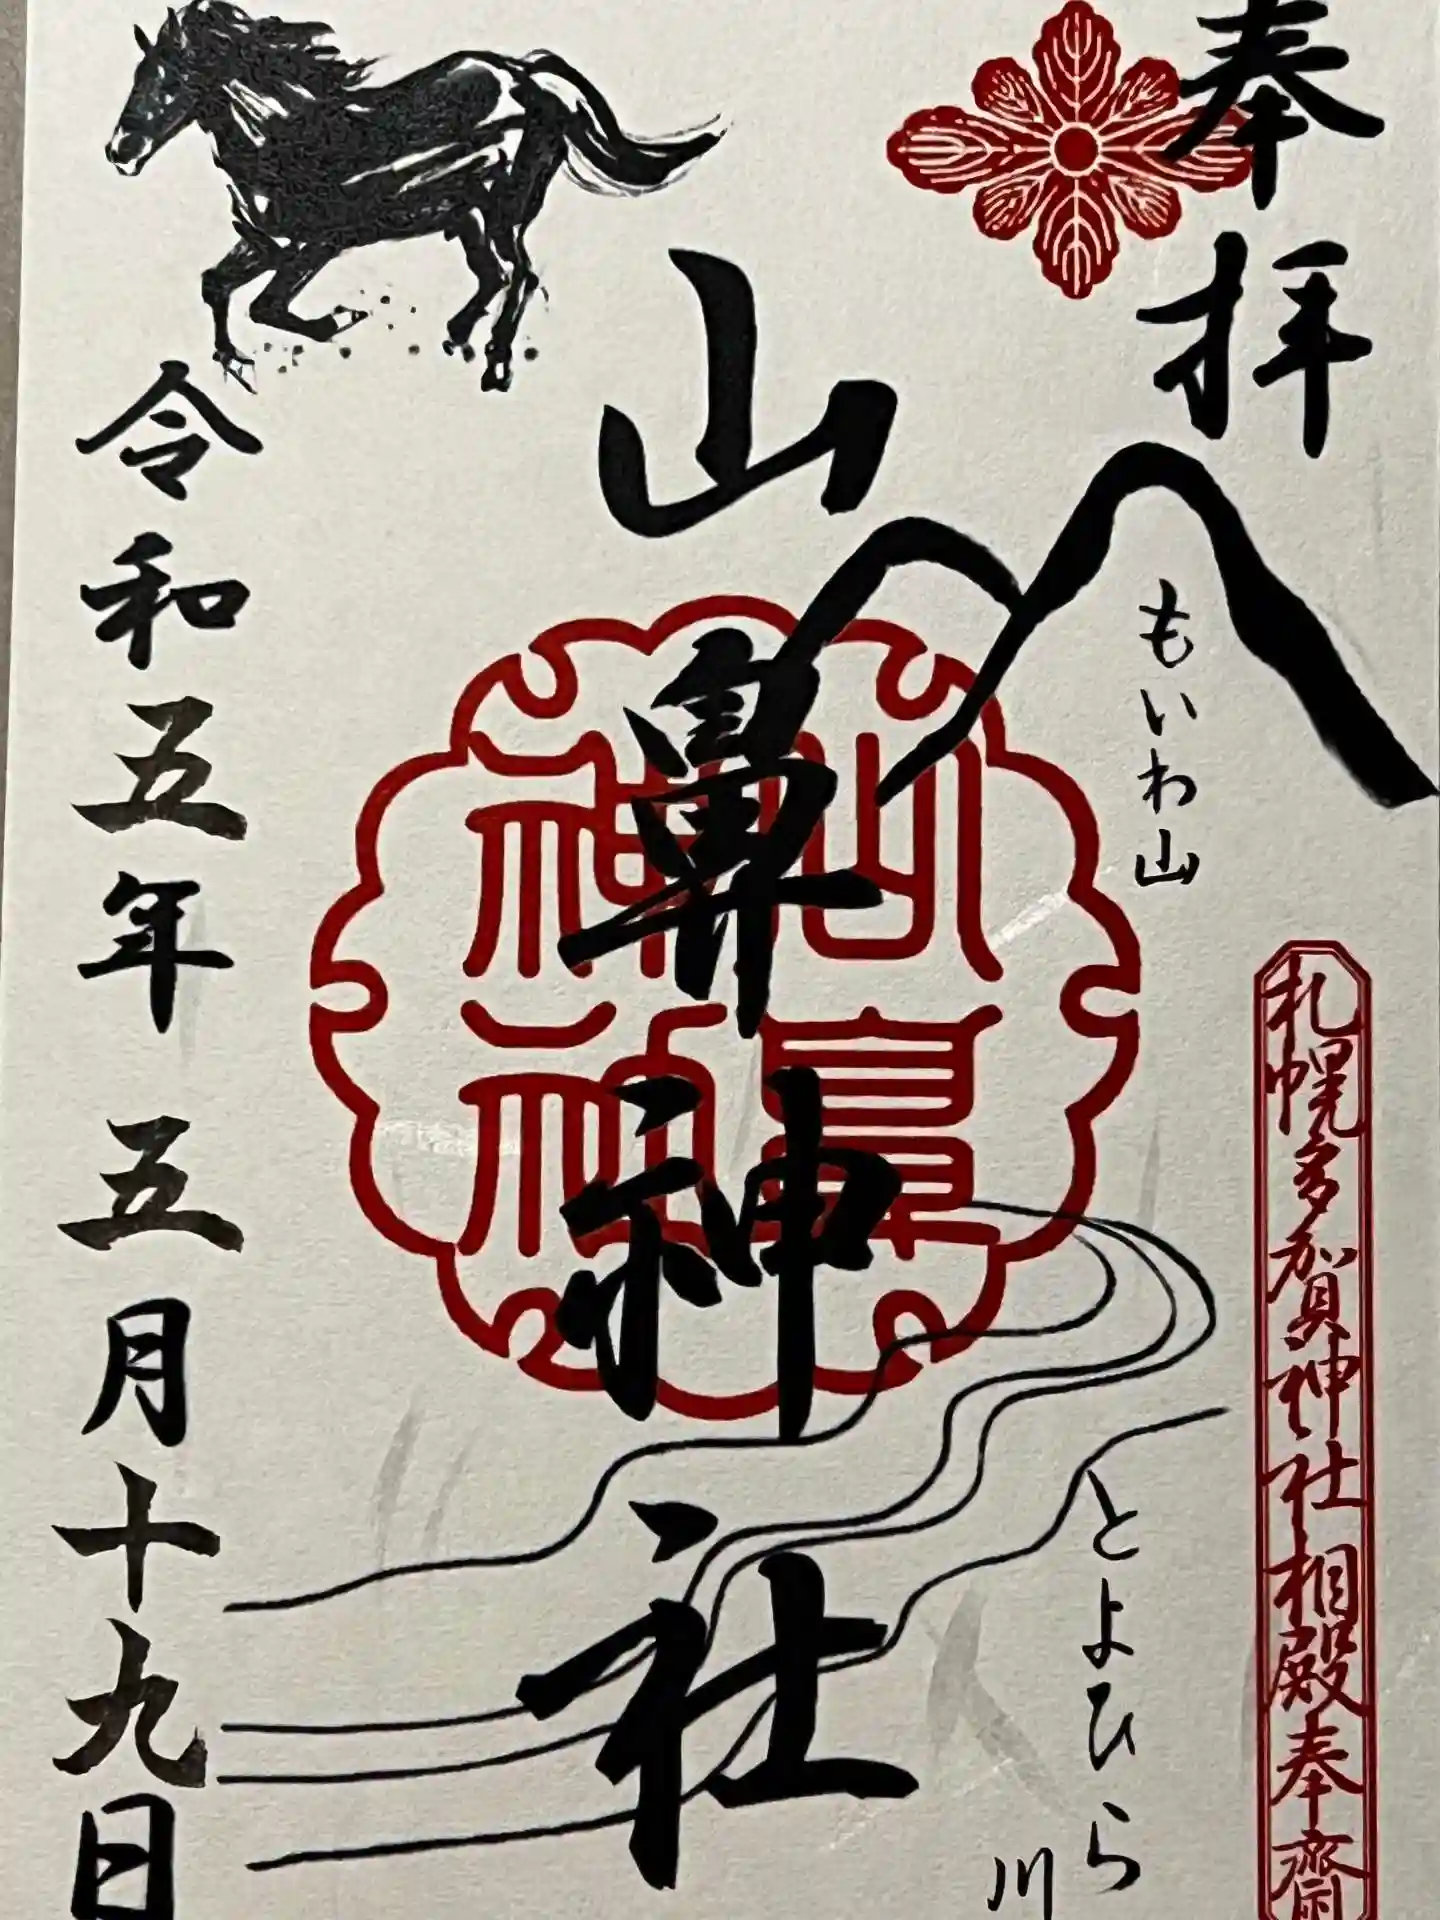 奉拝
もいわ山
札幌多賀神社相殿奉齋
とよひら川
山鼻神社
山鼻
神社
令和五年五月十九日